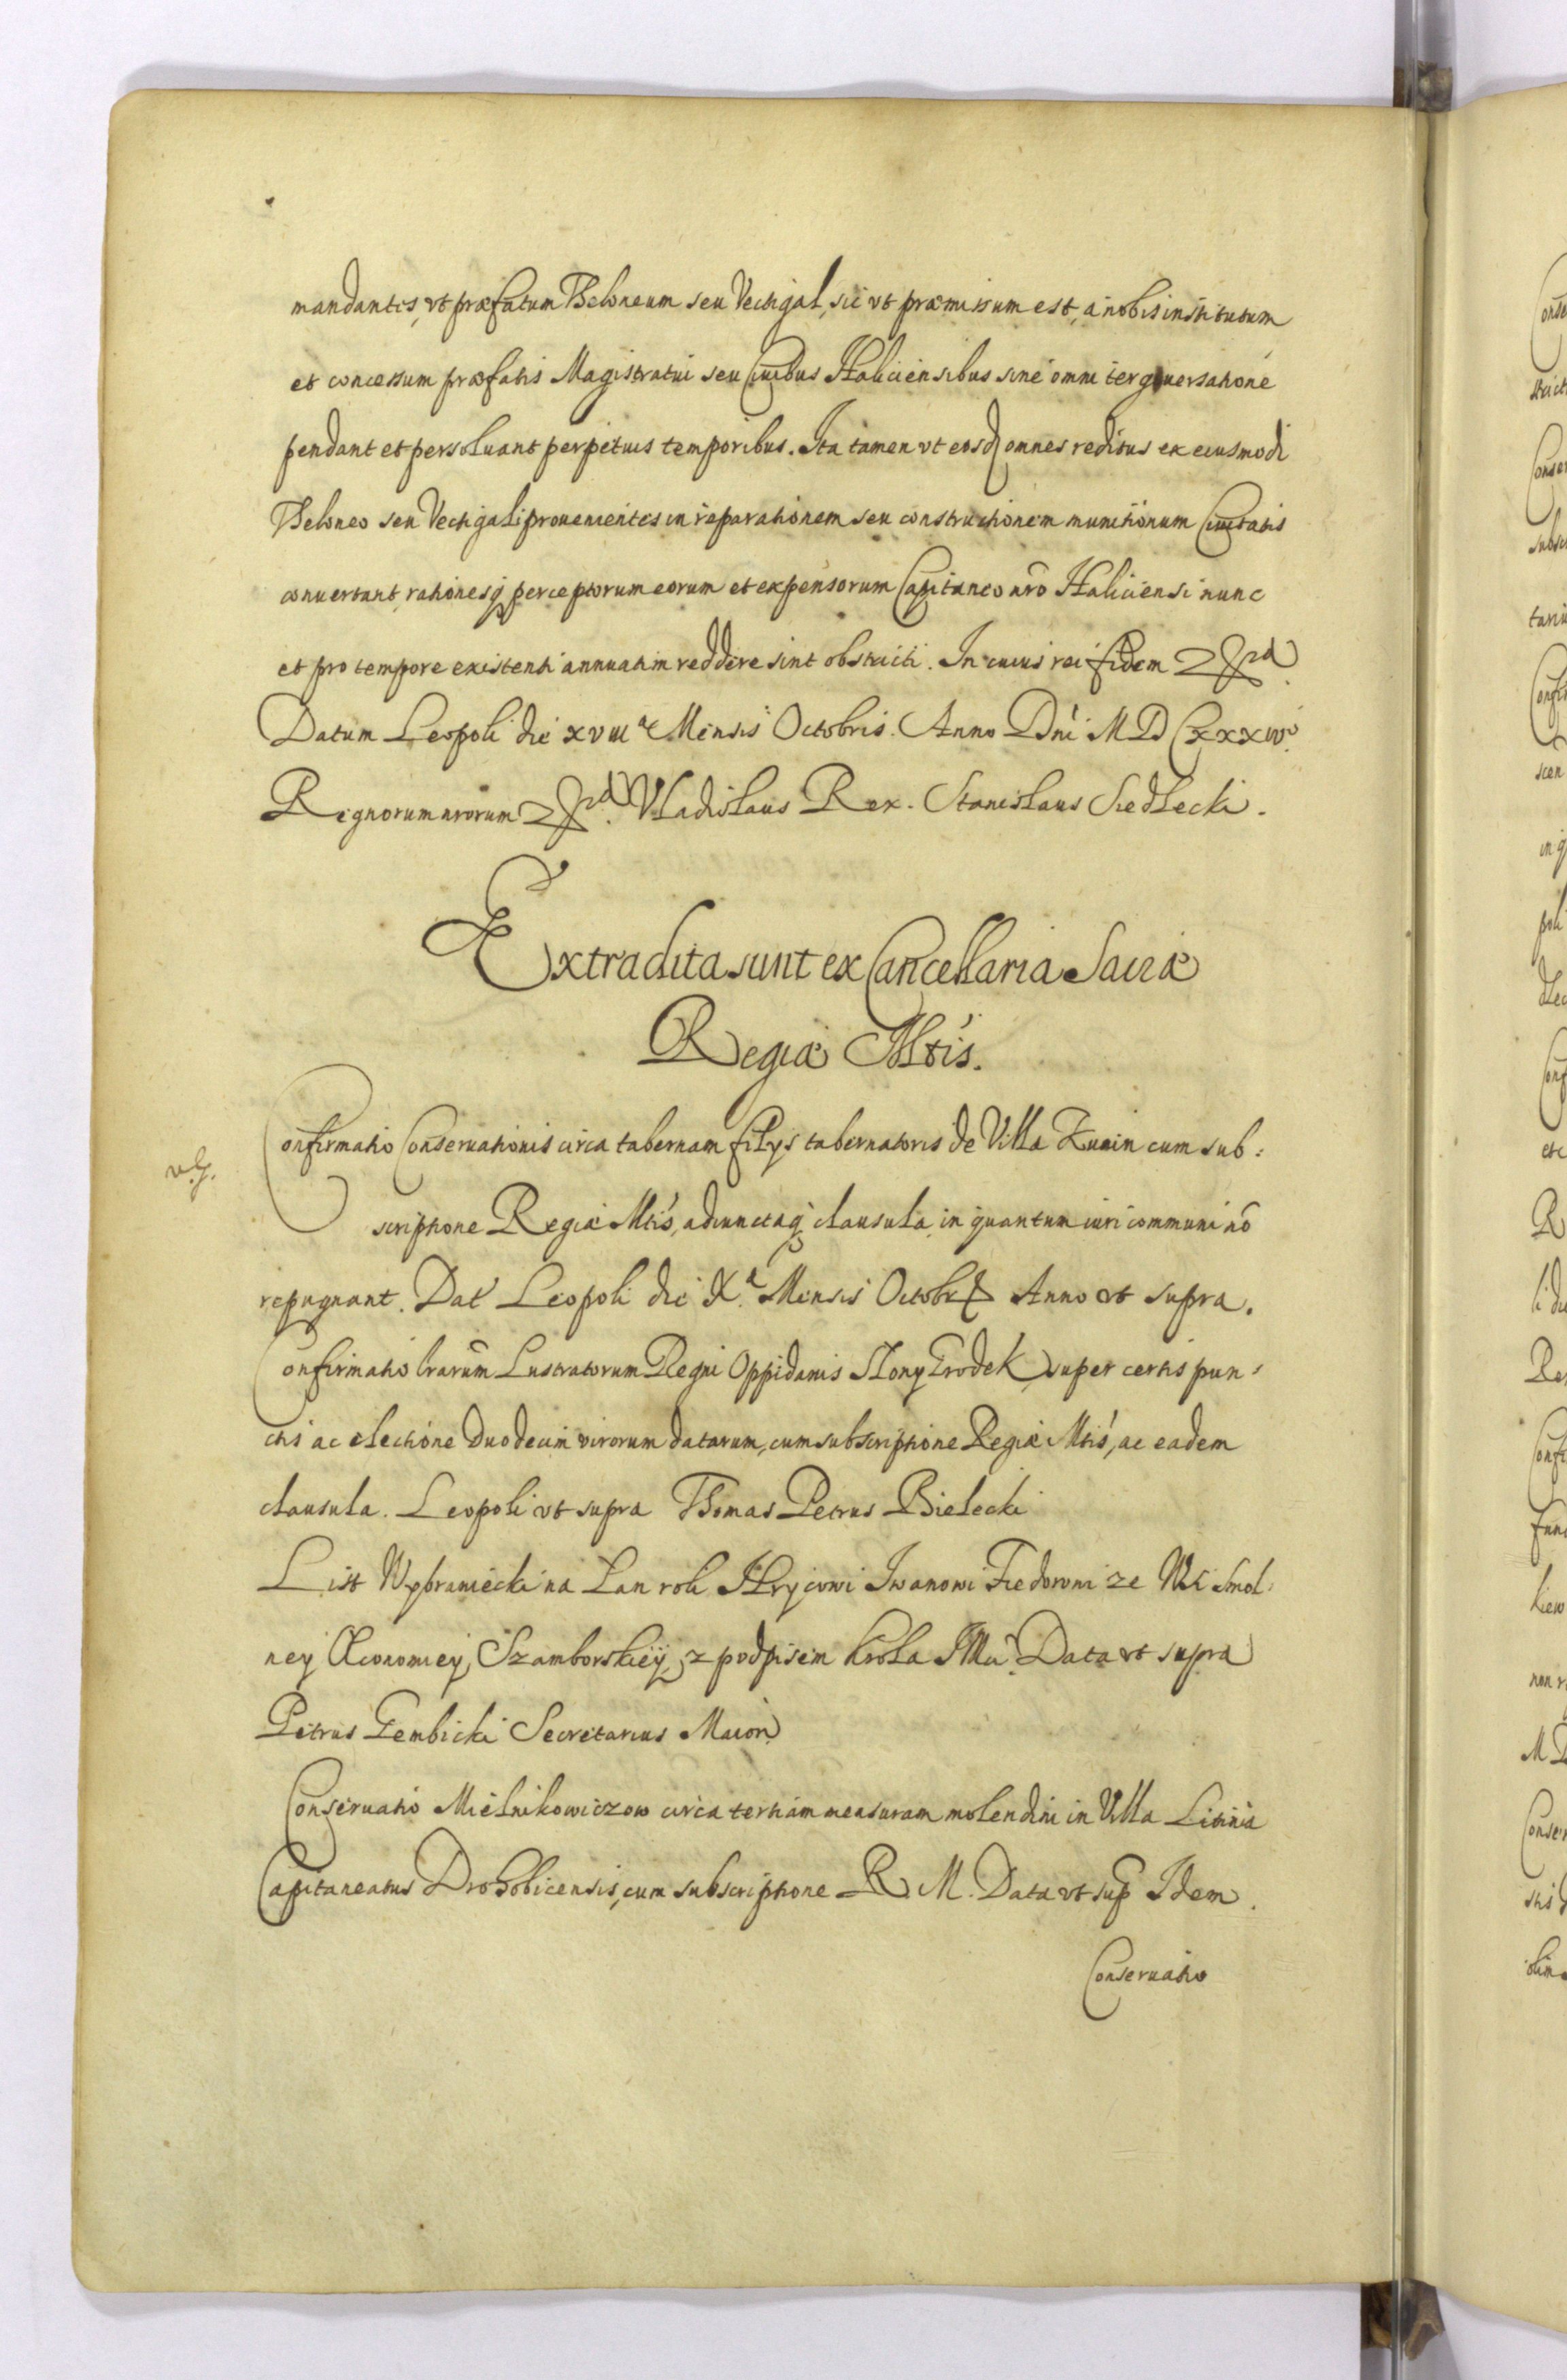 mandantes, vt præfatum Theloneum seu Vectigal, sic vt præmissum est, a nobis institutum
et concessum præfatis Magistratui seu Ciuibus Haliciensibus sine omni tergiuersatione
pendant et persoluant perpetuis temporibus. Ita tamen vt eosd omnes reditus ex eiusmodi
Theloneo seu Vectigali prouenientes in reparationem seu constructionem munitionum Ciuitatis
conuertant, rationesq perceptorum eorum et expensorum Capitaneo nro Haliciensi nunc
et pro tempore existenti annuatim reddere sint obstricti. In cuius rei fidem
Datum Leopoli die xviiia Mensis Octobris. Anno Dni MDCxxxivo
Regnorum nrorum Vladislaus Rex. Stanislaus Siedlecki.
Extradita sunt ex Cancellaria Sacræ
Regiæ Mtis.
Confirmatio Conseruationis circa tabernam filys tabernatoris de Villa Kunin cum sub:
scriptione Regiæ Mtis, adiunctaq clausula, in quantum iuri communi nō
repugnant. Dat Leopoli die Xa Mensis Octobr Anno vt supra.
Confirmatio lrarum Lustratorum Regni Oppidanis Grodek super certis pun:
ctis ac electione duodecim virorum datarum, cum subscriptione Regiæ Mtis, ac eadem
clausula. Leopoli vt supra Thomas Petrus Bielecki
List Wybraniecki na Łan roli Hrycowi Iwanowi Fiedorowi ze Wsi Smol:
ney Œconomiey Szamborskiey, z podpisem Krola JMci. Data vt supra
Petrus Gembicki Secretarius Maior
Conseruatio Mielnikowiczow circa tertiam mensuram molendini in Villa Litinia
Capitaneatus Drohobicensis, cum subscriptione R. M. Data vt sup Idem.
Conseruatio